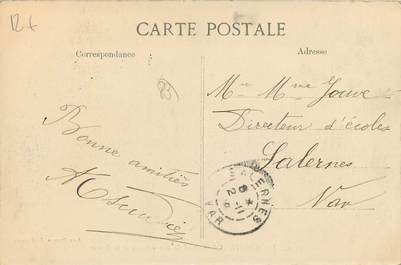 CARTE POSTALE
Correspondance
Adresse
83
Bonne amitiés
Mr Mme Jouve
Directeur d'école
Salernes
Var
SALERNES
VAR